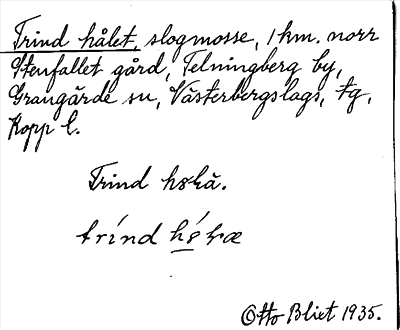 Trind hålet, slogmosse, 1 km. norr
Stenfallet gård, Telningberg by,
Grangärde sn, Västerbergslags, tg,
Kopp l.
Trind
trínd
Otto Blixt 1935.